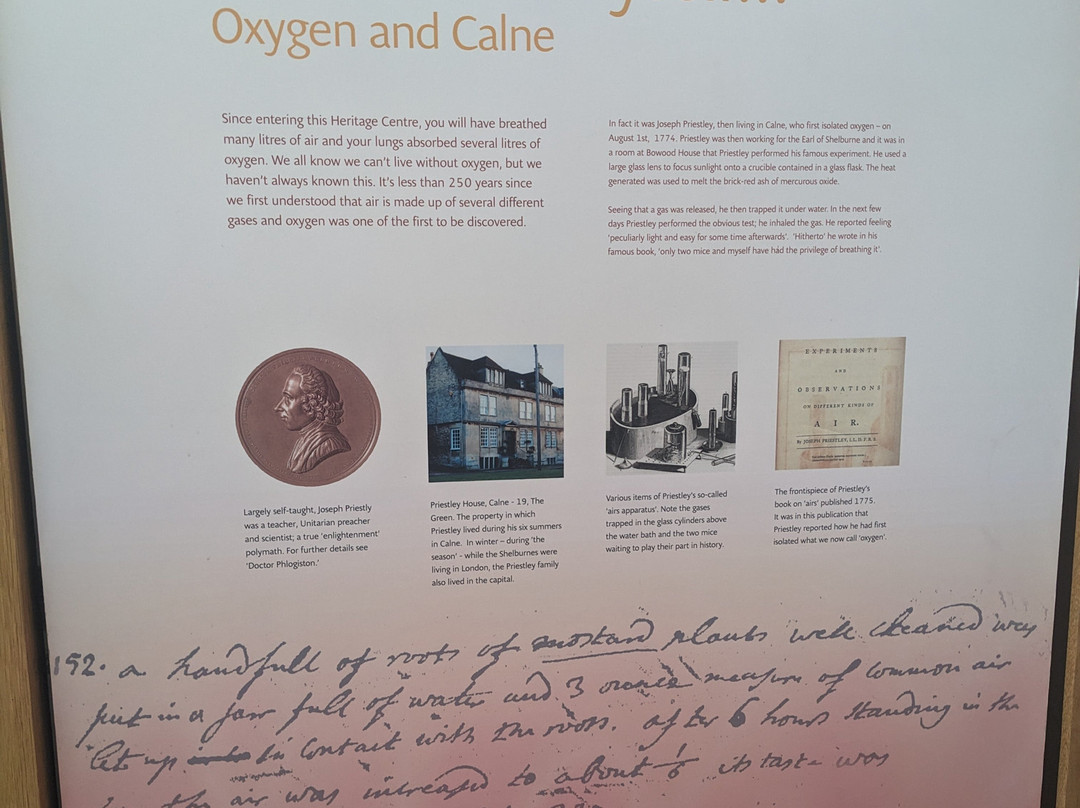 Oxygen and Calne
Since entering this Heritage Centre, you will have breathed
many litres of air and your lungs absorbed several litres of
oxygen. We all know we can't live without oxygen, but we
haven't always known this. It's less than 250 years since
we first understood that air is made up of several different
gases and oxygen was one of the first to be discovered.
In fact it was Joseph Priestley, then living in Calne, who first isolated oxygen – on
August 1st, 1774. Priestley was then working for the Earl of Shelburne and it was in
a room at Bowood House that Priestley performed his famous experiment. He used a
large glass lens to focus sunlight onto a crucible contained in a glass flask. The heat
generated was used to melt the brick-red ash of mercurous oxide.
Seeing that a gas was released, he then trapped it under water. In the next few
days Priestley performed the obvious test; he inhaled the gas. He reported feeling
'peculiarly light and easy for some time afterwards'. 'Hitherto' he wrote in his
famous book, 'only two mice and myself have had the privilege of breathing it'.
EXPERIMENTS
AND
OBSERVATIONS
ON DIFFERENT KINDS OF
AIR.
By JOSEPH PRIESTLEY, LL.D. F.R.S.
Largely self-taught, Joseph Priestly
was a teacher, Unitarian preacher
and scientist; a true 'enlightenment'
polymath. For further details see
'Doctor Phlogiston.'
Priestley House, Calne - 19, The
Green. The property in which
Priestley lived during his six summers
in Calne. In winter – during 'the
season' - while the Shelburnes were
living in London, the Priestley family
also lived in the capital.
Various items of Priestley's so-called
'airs apparatus'. Note the gases
trapped in the glass cylinders above
the water bath and the two mice
waiting to play their part in history.
The frontispiece of Priestley's
book on 'airs' published 1775.
It was in this publication that
Priestley reported how he had first
isolated what we now call 'oxygen'.
152. a handfull of roots of mostard plants well cleaned was
put in a Jarr full of water and 3 ounce measures of common air
let up in Contact with the roots. after 6 hours standing in the
the air was increased to about 1/6 its taste was